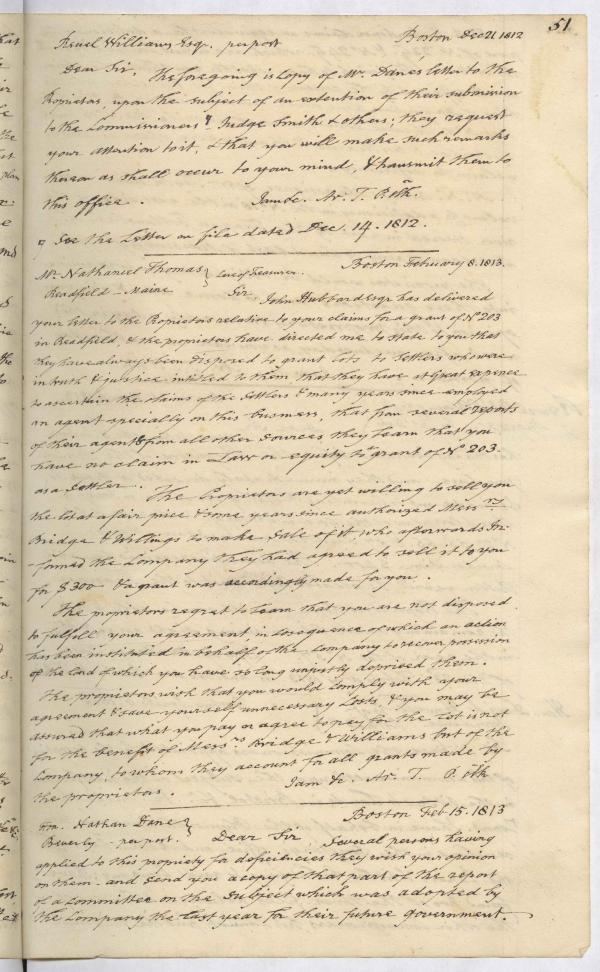 51
Reuel Williams Esqr. per post Boston Dec 21 1812
Dear Sir, The foregoing is Copy of Mr. Dane's letter to the
Propietors, upon the subject of an extention of their submission
to the Commissioners Judge Smith & others; they request
your attention to it, & that you will make such remarks
thereon as shall occur to your mind, & transmit them to
this office. I am &c. Ar. T. P. &th.
See the Letter on file dated Dec. 14. 1812.
Mr. Nathaniel Thomas Boston February 8. 1813.
Readfield - Maine Sir,
John Hubbard Esqr has delivered
your letter to the Propietors relative to your claims for a grant of No 203
in Readfield, & the proprietors have directed me to state to you that
they have always been disposed to grant lots to Settlers who were
in truth & justice intitled to them, that they have at Great expence
to ascertain the claims of the Settlers & many years since employed
an agent specially on this business, that from several reports
of their agent & from all other sources they learn that you
have no claim in Law or equity to grant of No 203.
as a Settler. The Proprietors are yet willing to sell you
the lot at a fair price & some years since authorized Messrs
Bridge & Willings to make sale of it who afterwards In-
formed the Company they had agreed to sell it to you
for $300 & a grant was accordingly made for you.
The proprietors regret to learn that you are not disposed
to fulfill your agreement, in consequence of which an action
has been instituted in behalf of the Company to recover possession
of the land of which you have so long unjustly deprived them.
The proprietors wish that you would comply with your
agreement & save yourself unnecessary Costs, & you may be
assured that what you pay or agree to pay for the Lot is not
for the benefit of Messrs Bridge & Williams but of the
Company, to whom they account for all grants made by
the proprietors. I am &c. Ar. T. P. &th
Hon. Nathan Dane Boston Feb 15. 1813
Beverly - per post. Dear Sir Several persons having
applied to this propriety for deficiencies they wish your opinion
on them - and send you a copy of that part of the report
of a Committee on the subject which was adopted by
the Company the last year for their future government.